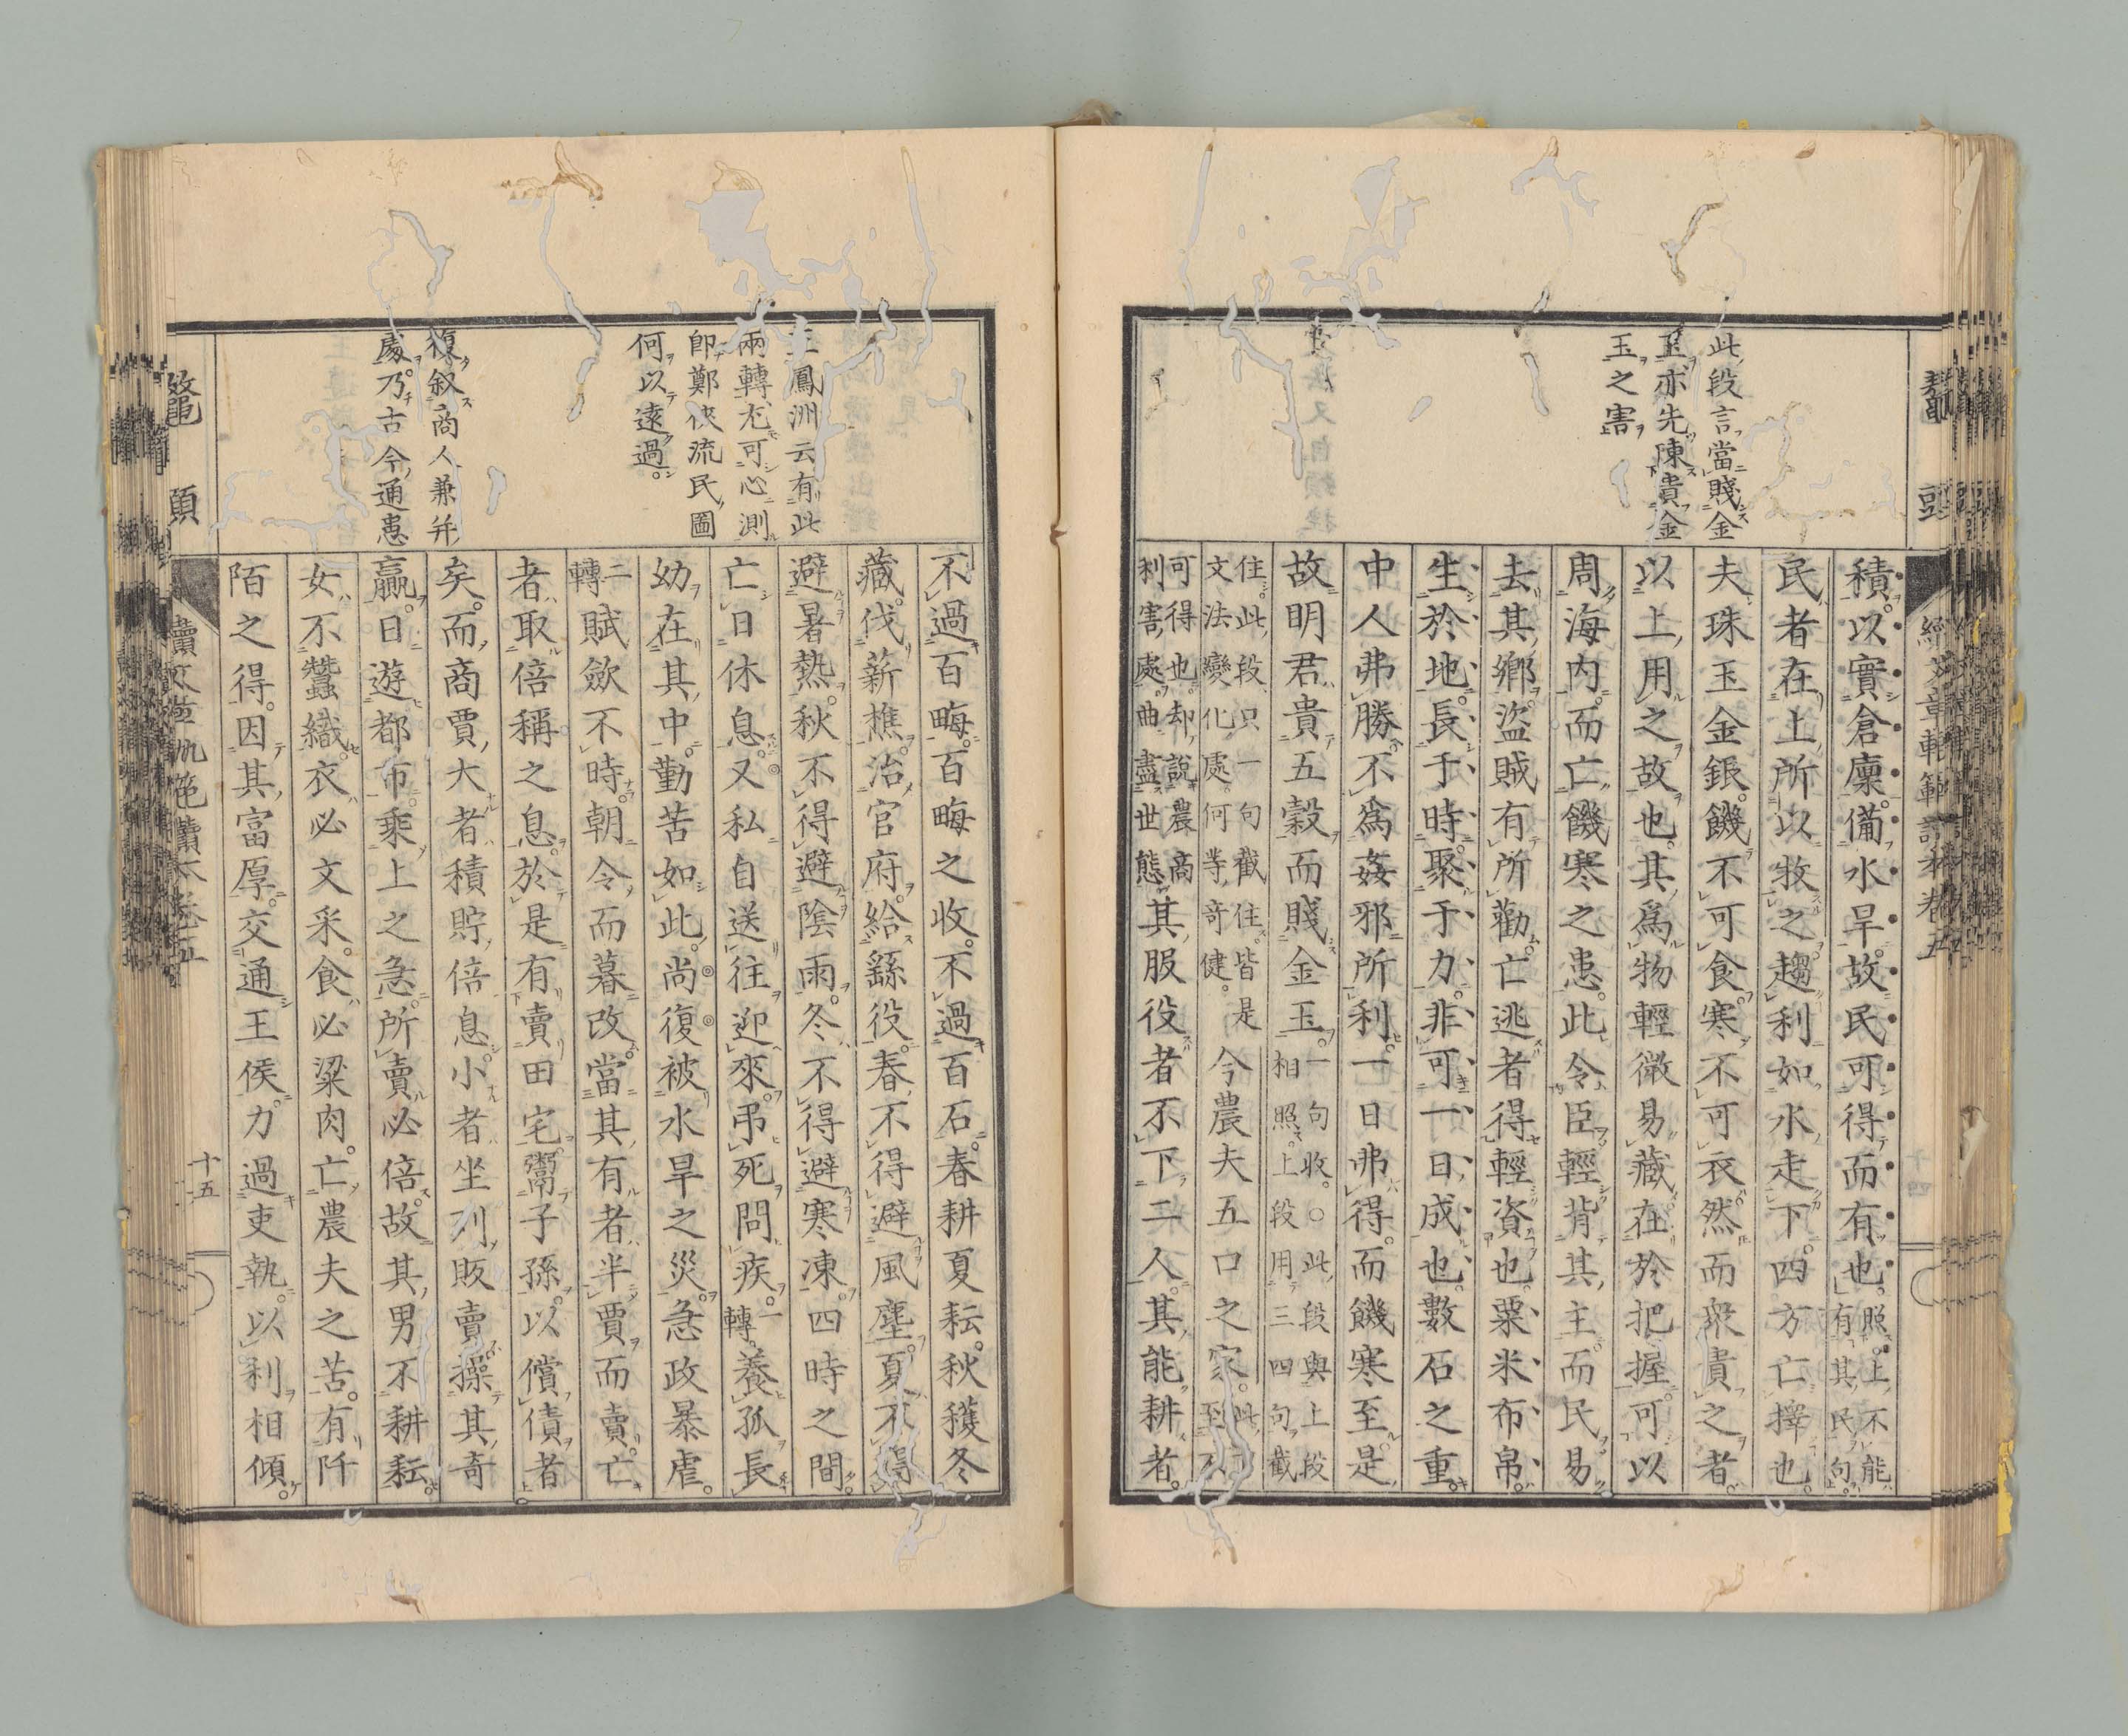 此段言當賤金
玉亦先陳貴金
玉之害
積以實倉廩備水旱故民可得而有也照上不能
有其民句
民者在上所以牧之趨利如水走下四方亡擇也
夫珠玉金銀饑不可食寒不可衣然而衆貴之者
以上用之故也其爲物輕微易藏在於把握可以
周海內而亡饑寒之患此令臣輕背其主而民易
去其鄉盜賊有所勸亡逃者得輕資也粟米布帛
生於地長于時聚于力非可一日成也數石之重
中人弗勝不爲姦邪所利一日弗得而饑寒至是
故明君貴五穀而賤金玉一句收○此段與上段
相照上段用三四句截
住此段只一句截住皆是
文法變化處何等奇健今農夫五口之家此
可得也却說農商
利害處曲盡世態其服役者不下二人其能耕者
王鳳洲云有此
兩轉尤可心測
卽鄭俠流民圖
何以遠過
復叙商人兼并
處乃古今通患
不過百畮百畮之收不過百石春耕夏耘秋穫冬
藏伐薪樵治官府給繇役春不得避風塵夏不得
避暑熱秋不得避陰雨冬不得避寒凍四時之間
亡日休息又私自送往迎來弔死問疾一轉養孤長
幼在其中勤苦如此尚復被水旱之災急政暴虐
二轉賦斂不時朝令而暮改當其有者半賈而賣亡
者取倍稱之息於是有賣田宅鬻子孫以償債者
矣而商賈大者積貯倍息小者坐列販賣操其奇
贏日遊都市乘上之急所賣必倍故其男不耕耘
女不蠶織衣必文采食必粱肉亡農夫之苦有阡
陌之得因其富厚交通王侯力過吏執以利相傾
十五